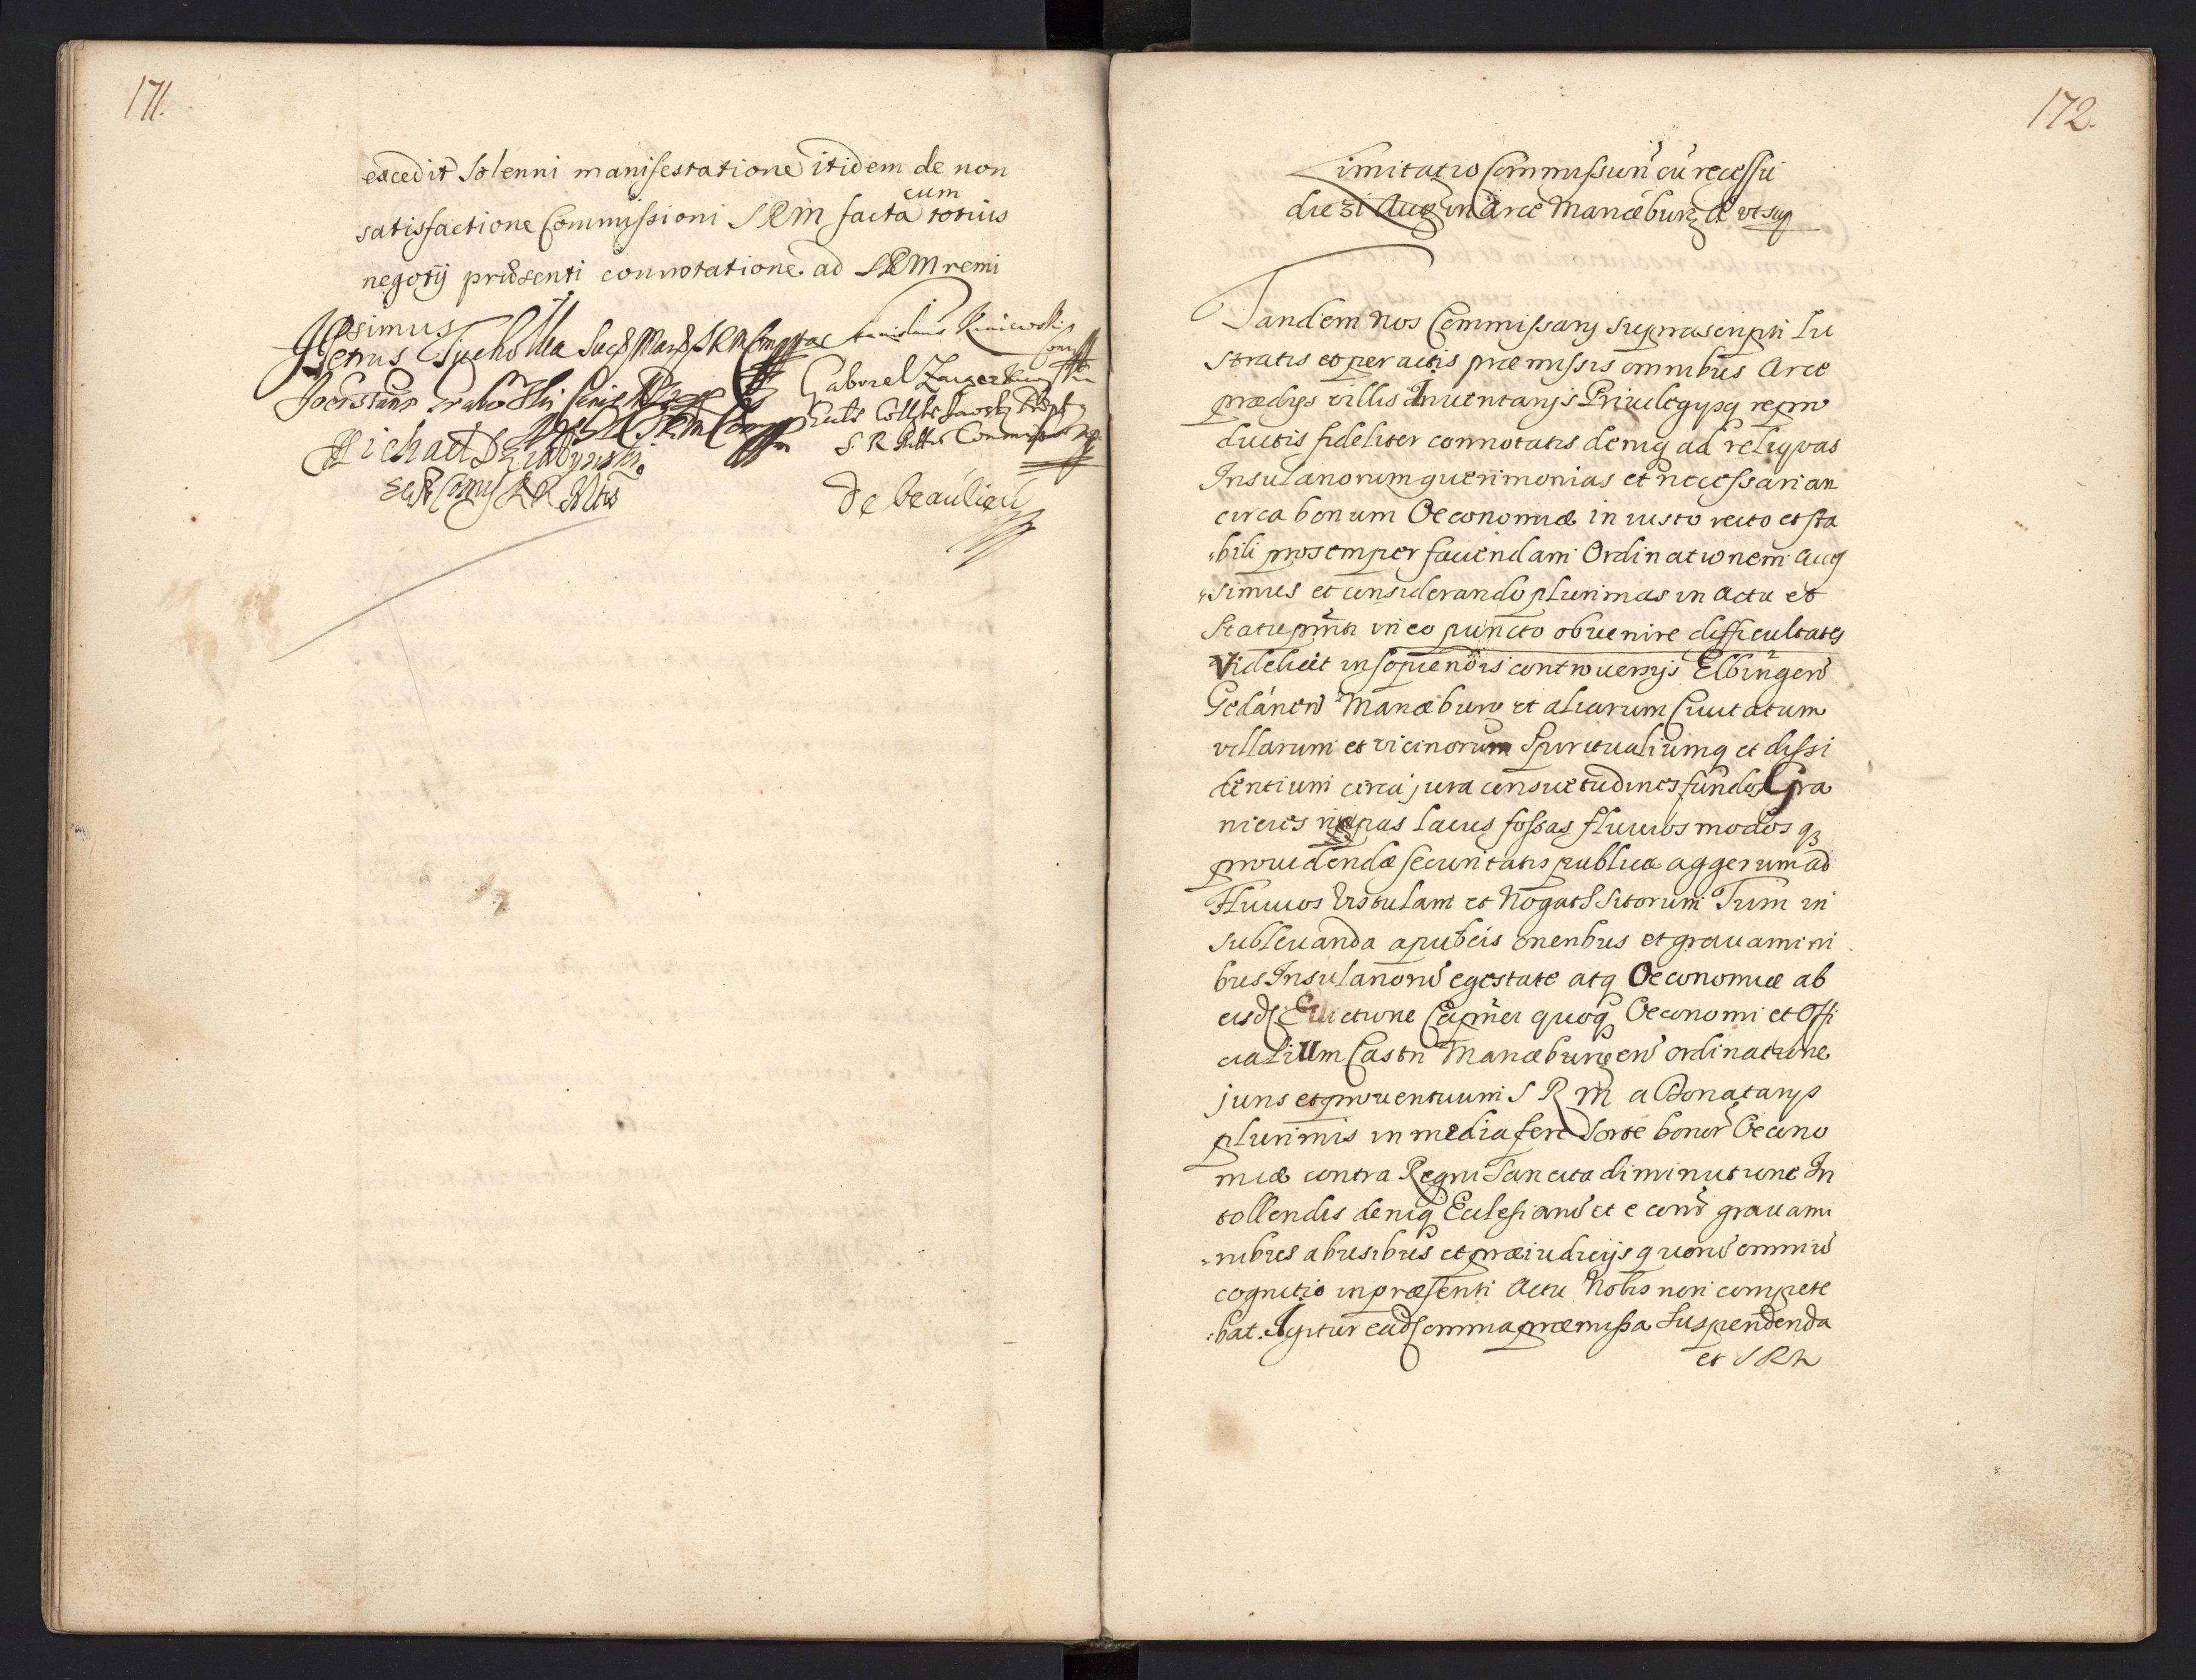 171.
excedit Solenni manifestatione itidem de non
cum
satisfactione Commissioni SRM facta totius
negotij præsenti connotatione ad SRM remi
simus
Petrus Tucholka
Gabriel
Michael Działynski
S. R.
de beaulieu
172.
Limitatio Commissun cu recessu
die 31 Aug in Arce Mariæburg A ut sup
Tandem Nos Commissarij suprascripti Lu
stratis et peractis præmissis omnibus Arce
prædijs villis Inventarijs Privilegijsq repro
ductis fideliter connotatis deniq ad reliquas
Insulanorum querimonias et necessariam
circa bonum Oeconomiæ in iusto recto et sta
bili pro semper faciendam Ordinationem
simus et considerando plurimas in Actu et
Statu pnti in eo puncto obvenire difficultates
Videlicet in sopiendis controversijs Elbingen
Gedanen Mariæburg et aliarum Civitatum
villarum et vicinorum Spiritualiumq et dissi
dentium circa jura consuetudines fundos Gra
nicies ripas lacus fossas fluvios modos q3
providendæ securitatis publicæ aggerum ad
Fluvios Vistulam et Nogath sitorum Tum in
sublevanda a publicis oneribus et gravamini
bus Insulanorū egestate atq Oeconomiæ ab
eisd Evictione Capnei quoq Oeconomi et Offi
cialium Castri Mariæburgen ordinatione
juris et proventuum S R M a Donatarijs
plurimis in media fere Sorte bonor Oecono
miæ contra Regni Sancita diminutione In
tollendis deniq Ecclesiarū et e conv gravami
nibus abusibus et præiudicijs quorū omniū
cognitio in præsenti Actu Nobis non compete
bat. Igitur ead omnia præmissa Suspendenda
et SRM